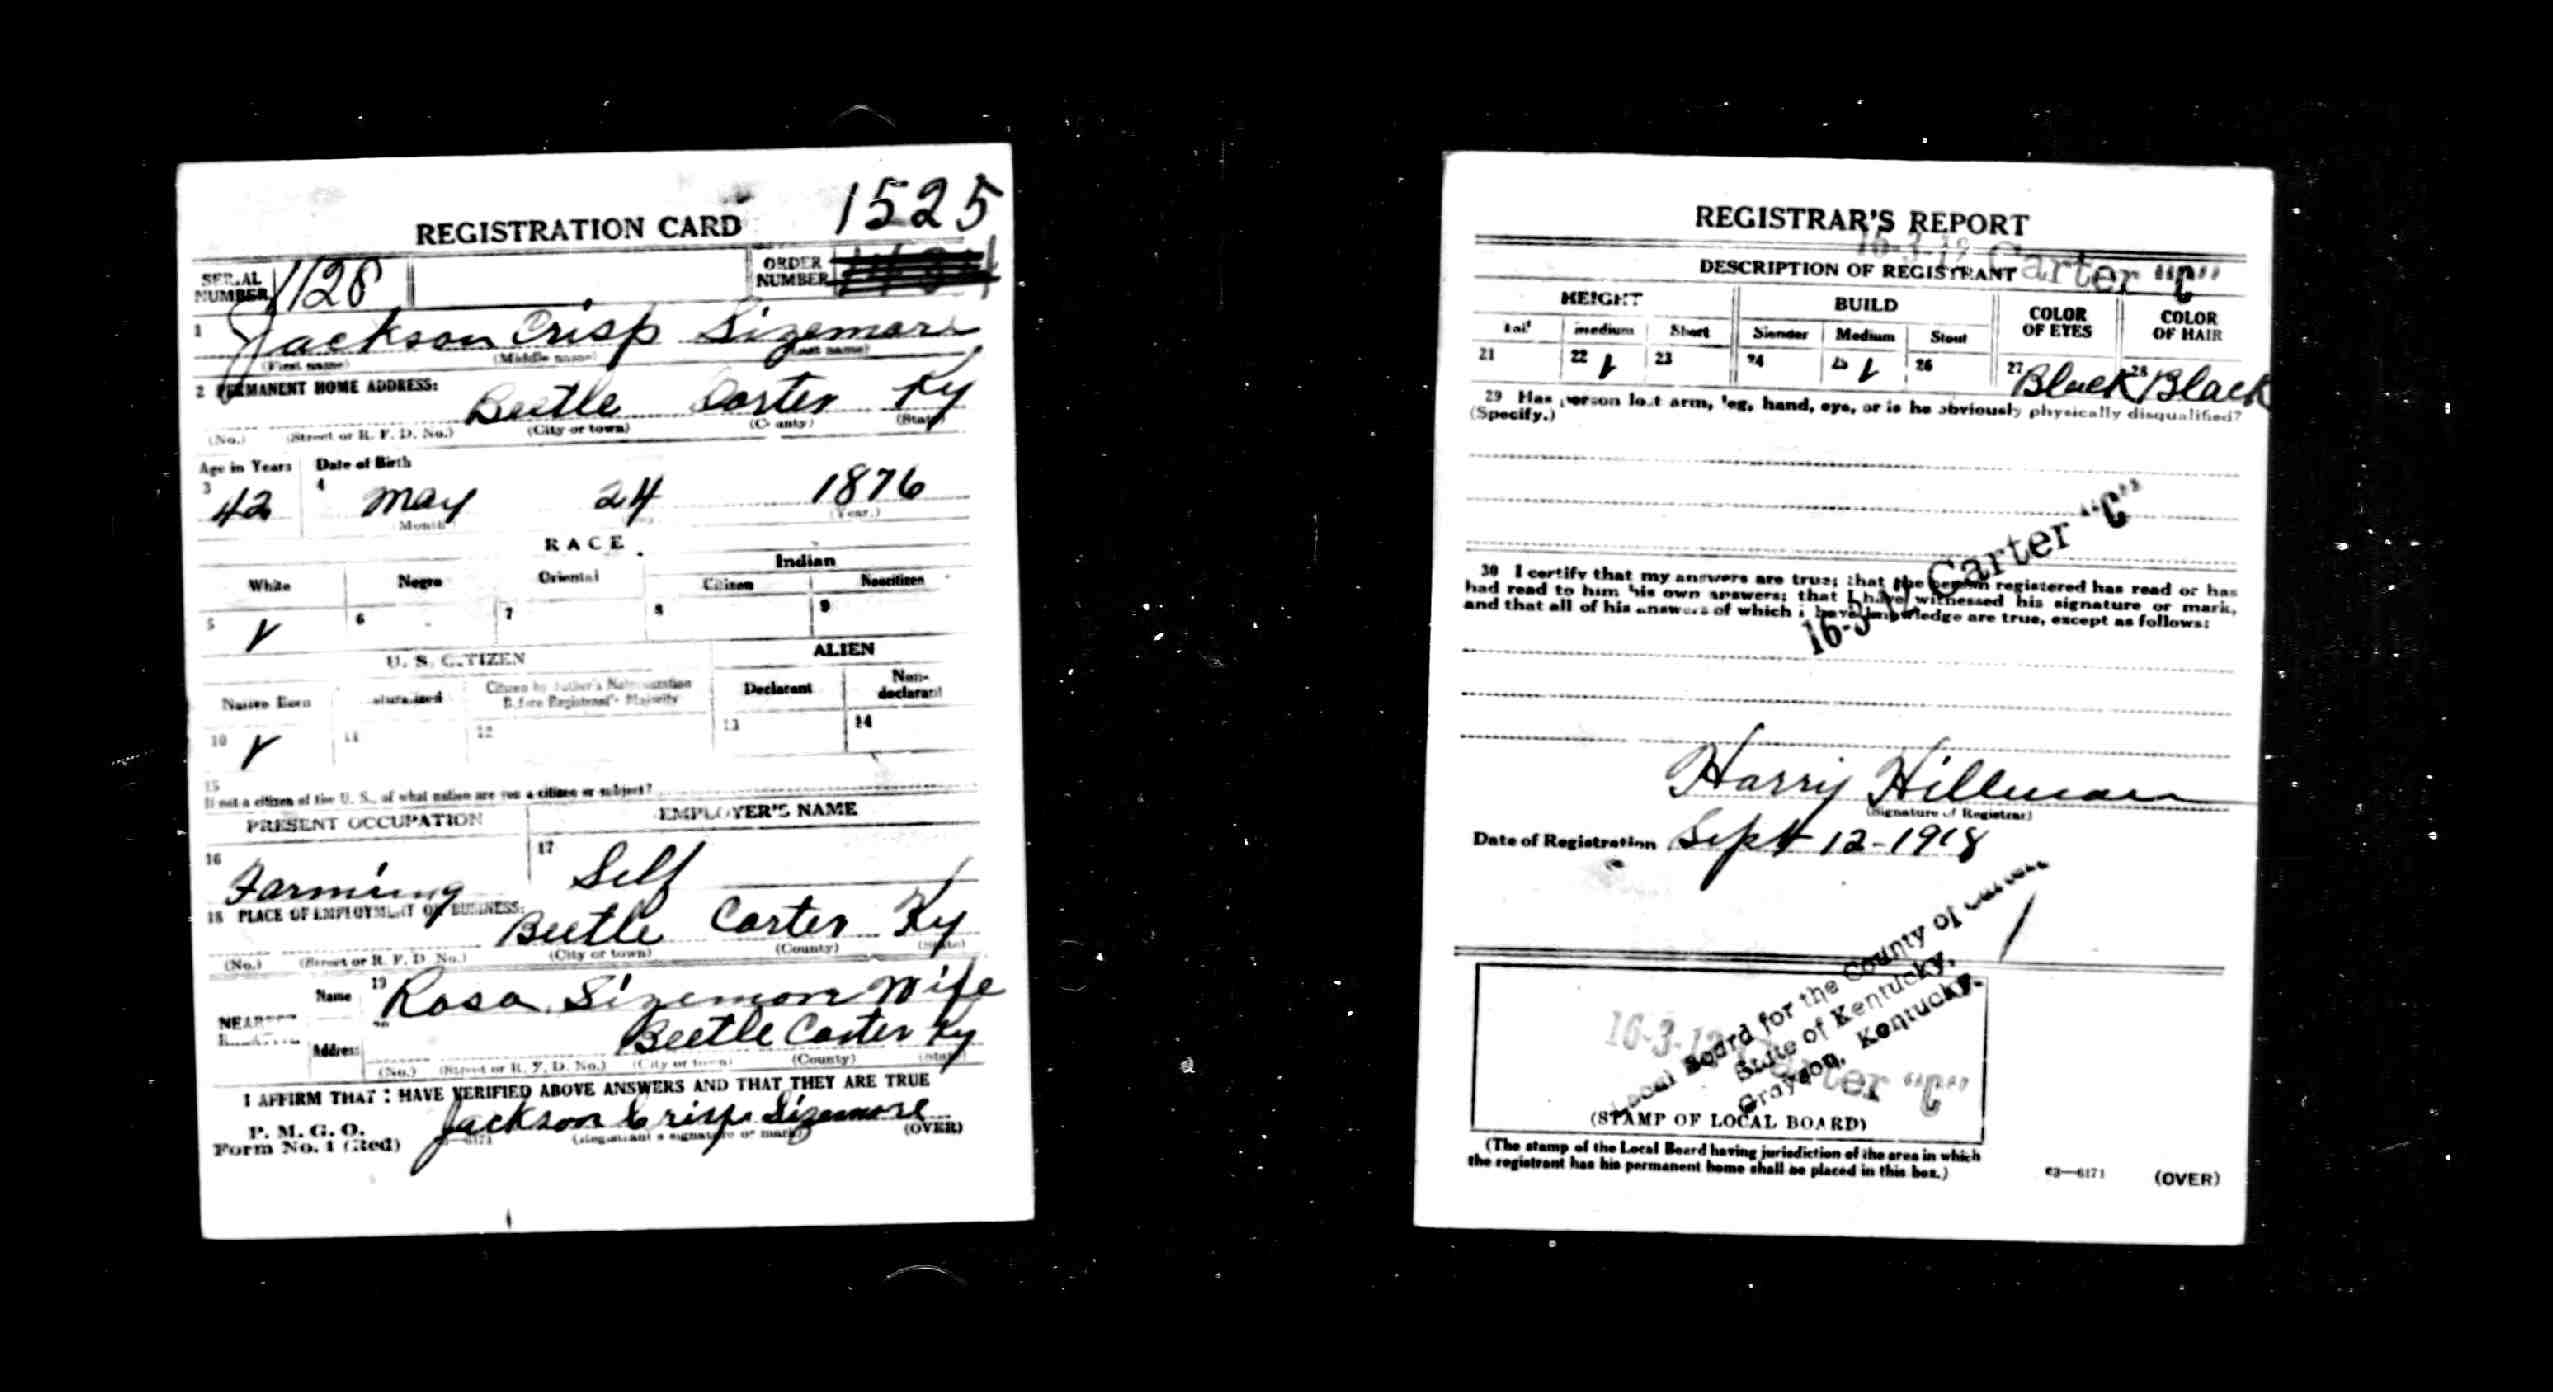 1525
REGISTRATION CARD
SERIAL NUMBER 1128
ORDER NUMBER
1 Jackson Crisp Sizemore
(First name) (Middle name) (Last name)
2 PERMANENT HOME ADDRESS:
Beetle Carter Ky
(No.) (Street or R. F. D. No.) (City or town) (County) (State)
Age in Years Date of Birth
3 42 4 May 24 1876
(Month) (Year.)
RACE
Indian
White Negro Oriental Citizen Noncitizen
5 6 7 8 9
U. S. CITIZEN ALIEN
Native Born Naturalized Citizen by Father's Naturalization Before Registrant's Majority Declarant Non-declarant
10 11 12 13 14
15
If not a citizen of the U. S., of what nation are you a citizen or subject?
PRESENT OCCUPATION EMPLOYER'S NAME
16 Farming 17 Self
18 PLACE OF EMPLOYMENT OR BUSINESS:
Beetle Carter Ky
(No.) (Street or R. F. D. No.) (City or town) (County) (State)
NEAREST RELATIVE
Name 19 Rosa Sizemore Wife
Address 20 Beetle Carter Ky
(No.) (Street or R. F. D. No.) (City or town) (County) (State)
I AFFIRM THAT I HAVE VERIFIED ABOVE ANSWERS AND THAT THEY ARE TRUE
P. M. G. O.
Form No. 1 (Red)
Jackson Crisp Sizemore
(Registrant's signature or mark) (OVER)
REGISTRAR'S REPORT
Carter "C"
DESCRIPTION OF REGISTRANT
HEIGHT BUILD COLOR OF EYES COLOR OF HAIR
Tall medium Short Slender Medium Stout
21 22 23 24 25 26 27 Black 28 Black
29 Has person lost arm, leg, hand, eye, or is he obviously physically disqualified?
(Specify.)
16-3-12 Carter "C"
30 I certify that my answers are true; that the person registered has read or has
had read to him his own answers; that I have witnessed his signature or mark,
and that all of his answers of which I have knowledge are true, except as follows:
Harry Hillman
(Signature of Registrar)
Date of Registration Sept 12-1918
Local Board for the County of Carter
State of Kentucky,
Grayson, Kentucky.
16-3-12 Carter "C"
(STAMP OF LOCAL BOARD)
(The stamp of the Local Board having jurisdiction of the area in which
the registrant has his permanent home shall be placed in this box.)
63—6171 (OVER)